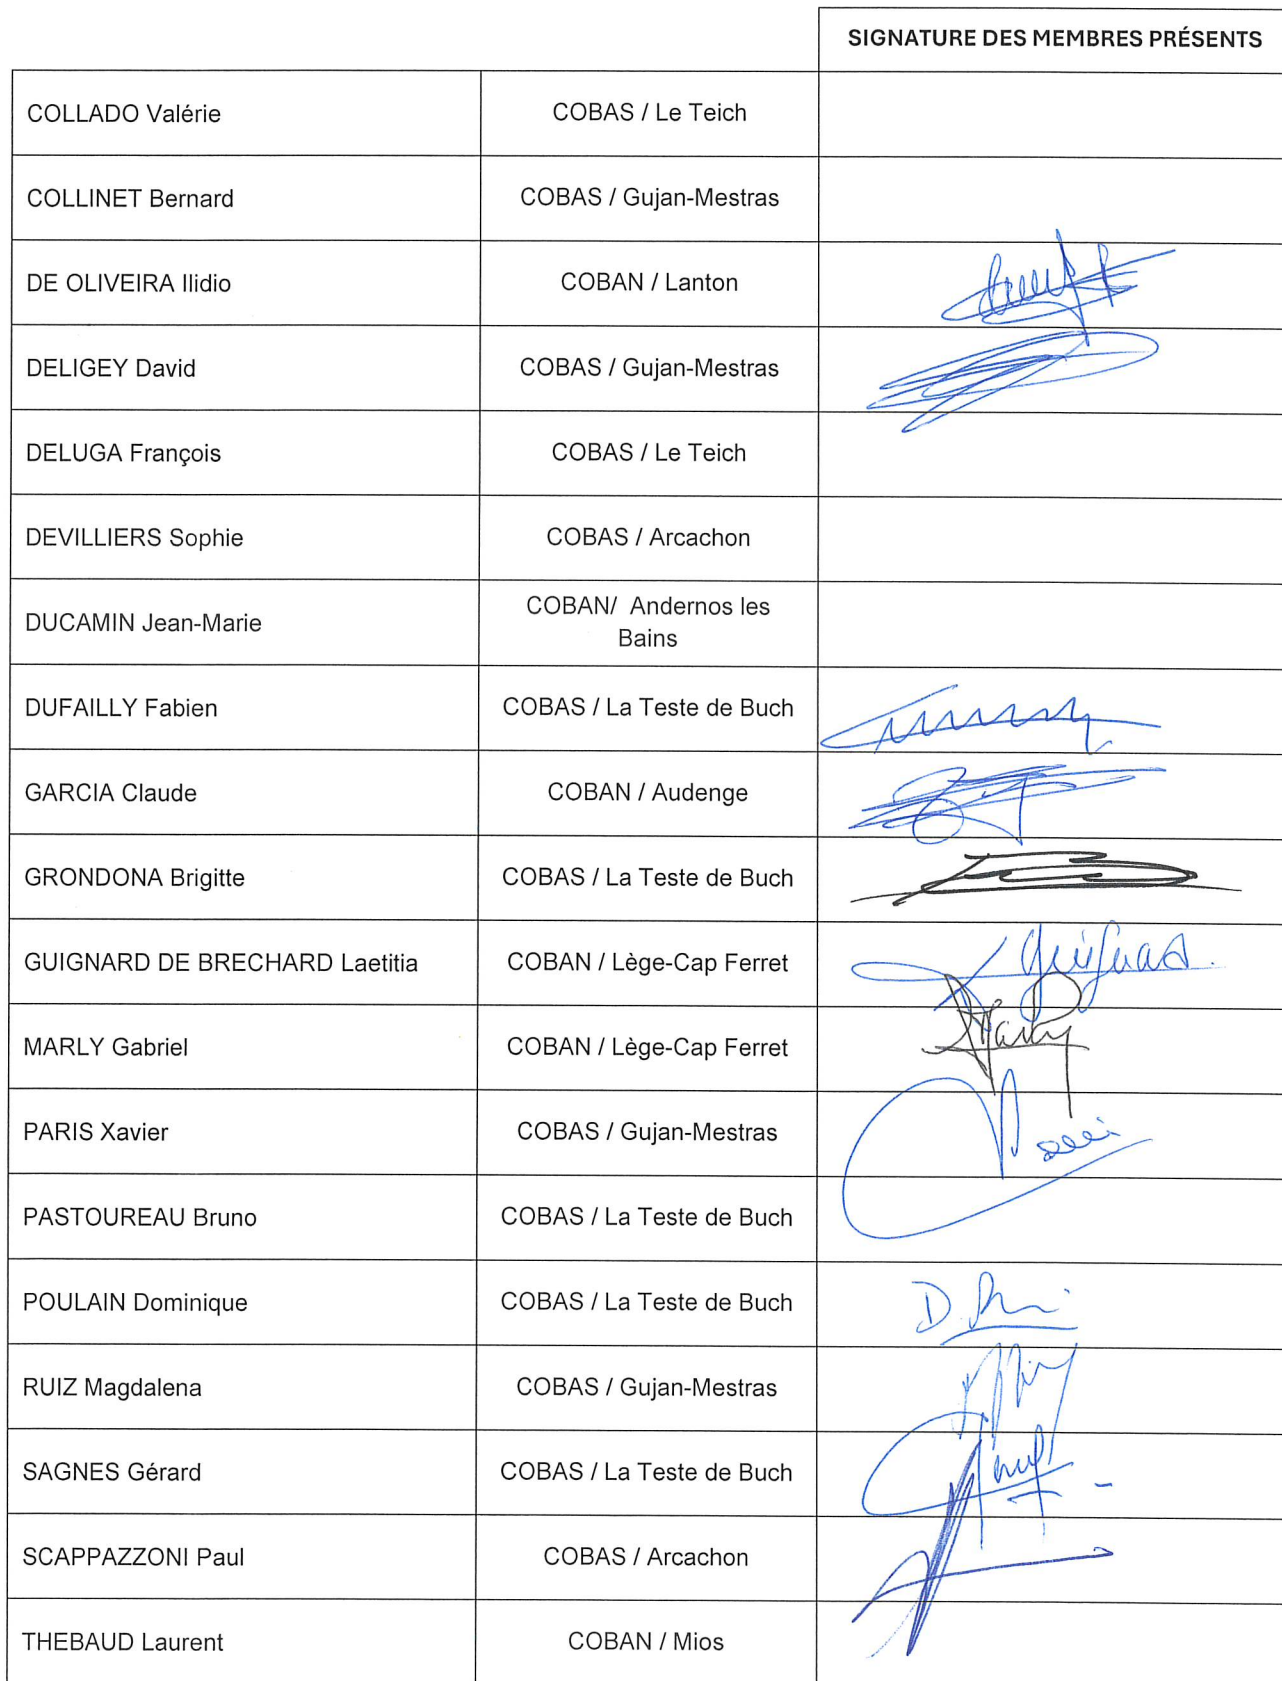 SIGNATURE DES MEMBRES PRÉSENTS
COLLADO Valérie COBAS / Le Teich
COLLINET Bernard COBAS / Gujan-Mestras
DE OLIVEIRA Ilidio COBAN / Lanton
DELIGEY David COBAS / Gujan-Mestras
DELUGA François COBAS / Le Teich
DEVILLIERS Sophie COBAS / Arcachon
DUCAMIN Jean-Marie COBAN/ Andernos les
Bains
DUFAILLY Fabien COBAS / La Teste de Buch
GARCIA Claude COBAN / Audenge
GRONDONA Brigitte COBAS / La Teste de Buch
GUIGNARD DE BRECHARD Laetitia COBAN / Lège-Cap Ferret
MARLY Gabriel COBAN / Lège-Cap Ferret Marly
PARIS Xavier COBAS / Gujan-Mestras
PASTOUREAU Bruno COBAS / La Teste de Buch
POULAIN Dominique COBAS / La Teste de Buch D.
RUIZ Magdalena COBAS / Gujan-Mestras
SAGNES Gérard COBAS / La Teste de Buch
SCAPPAZZONI Paul COBAS / Arcachon
THEBAUD Laurent COBAN / Mios